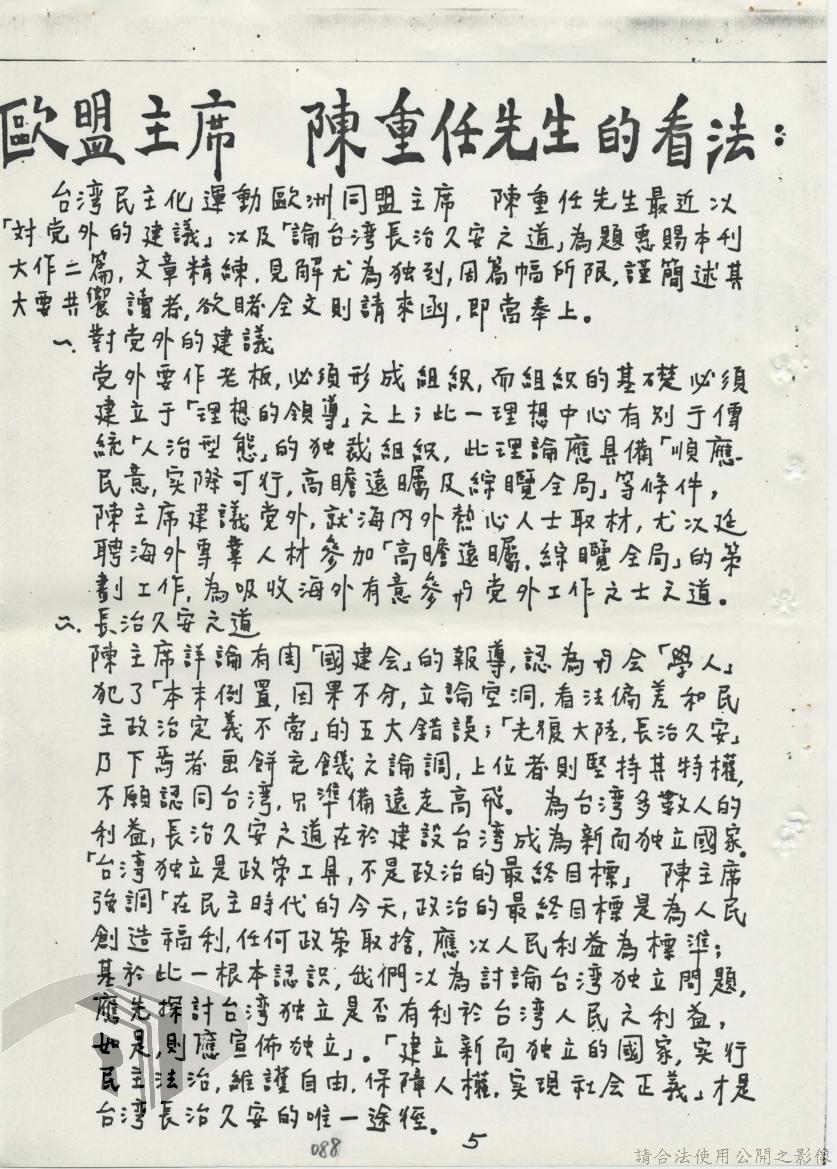 歐盟主席　陳重任先生的看法：
台湾民主化運動歐洲同盟主席　陳重任先生最近以
「対党外的建議」以及「論台湾長治久安之道」為題惠賜本刊
大作二篇，文章精練，見解尤為独到，因篇幅所限，謹簡述其
大要共饗讀者，欲睹全文則請來函，即當奉上。
一、對党外的建議
党外要作老板，必須形成組織，而組織的基礎必須
建立于「理想的領導」之上；此一理想中心有別于傳
統「人治型態」的独裁組織，此理論應具備「順應
民意，实際可行，高瞻遠矚及綜覽全局」等條件，
陳主席建議党外，就海内外熱心人士取材，尤次延
聘海外專業人材參加「高瞻遠矚，綜覽全局」的策
劃工作，為吸收海外有意參與党外工作之士之道。
二、長治久安之道
陳主席詳論有関「國建会」的報導，認為與会「學人」
犯了「本末倒置，因果不分，立論空洞，看法偏差和民
主政治定義不當」的五大錯誤；「光復大陸，長治久安」
乃下焉者画餅充饑之論調，上位者則堅持其特權，
不願認同台湾，只準備遠走高飛。　為台湾多数人的
利益，長治久安之道在於建設台湾成為新而独立國家。
「台湾独立是政策工具，不是政治的最終目標」　陳主席
強調「在民主時代的今天，政治的最終目標是為人民
創造福利，任何政策取捨，應以人民利益為標準；
基於此一根本認識，我們以為討論台湾独立問題，
應先探討台湾独立是否有利於台湾人民之利益，
如是，則應宣佈独立」。「建立新而独立的國家，实行
民主法治，維護自由，保障人權，实現社会正義」才是
台湾長治久安的唯一途徑。
088
5
請合法使用公開之影像